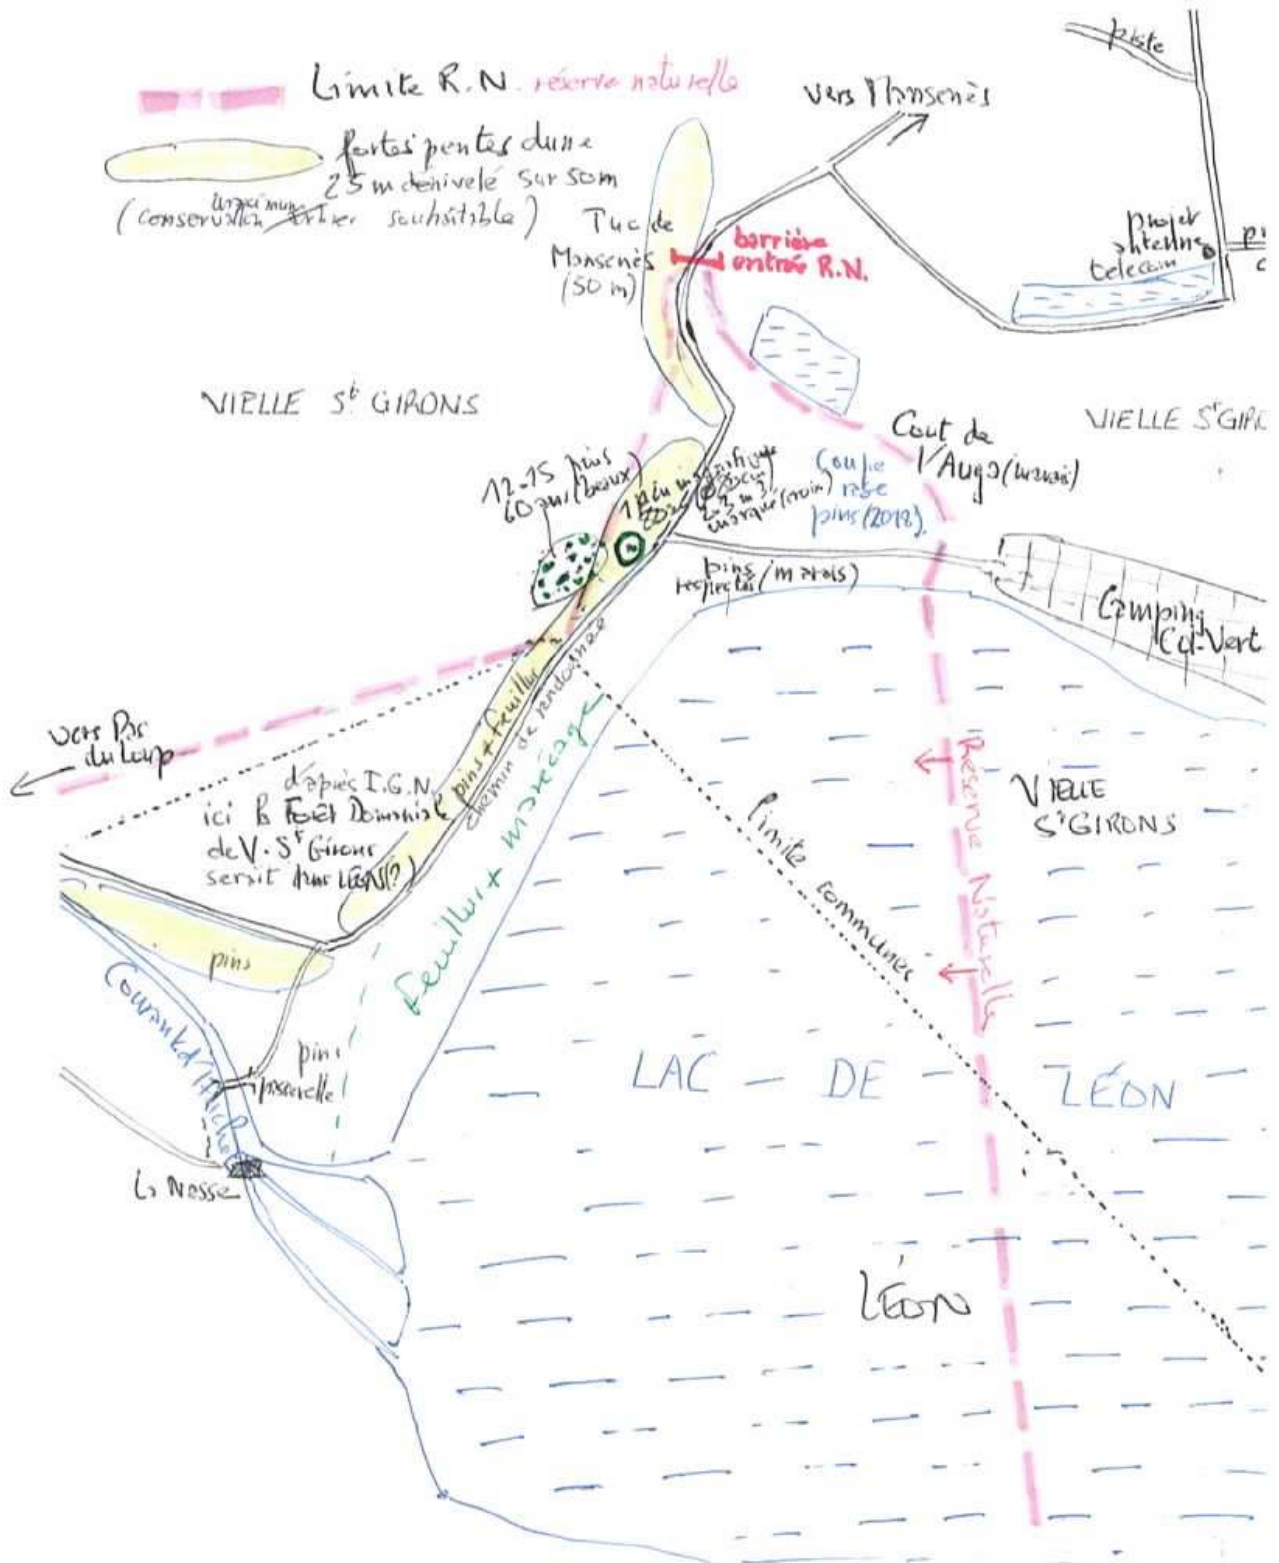 Limite R.N. réserve naturelle
fortes pentes dune
25 m dénivelé sur 50m
(conservation maximum souhaitable)
vers Mansenès
piste
Tuc de
Mansenès
(50 m)
barrière
entrée R.N.
projet
antenne
telecom
VIELLE St GIRONS
Cout de
l'Auga (marais)
VIELLE St GIR
12-15 pins
60 ans (beaux)
1 pin magnifique
2-3 m3
marqué (croix)
Coupe
rase
pins (2018)
pins
respectés (marais)
Camping
Col-Vert
vers Pas
du Loup
d'après I.G.N.
ici la Forêt Domaniale
de V. St Girons
serait sur LÉON(?)
pins + feuillus
chemin de randonnée
Feuillus + marécage
limite communes
Réserve Naturelle
VIELLE
St GIRONS
pins
Courant d'Huchet
pins
passerelle
La Nasse
LAC DE LÉON
LÉON